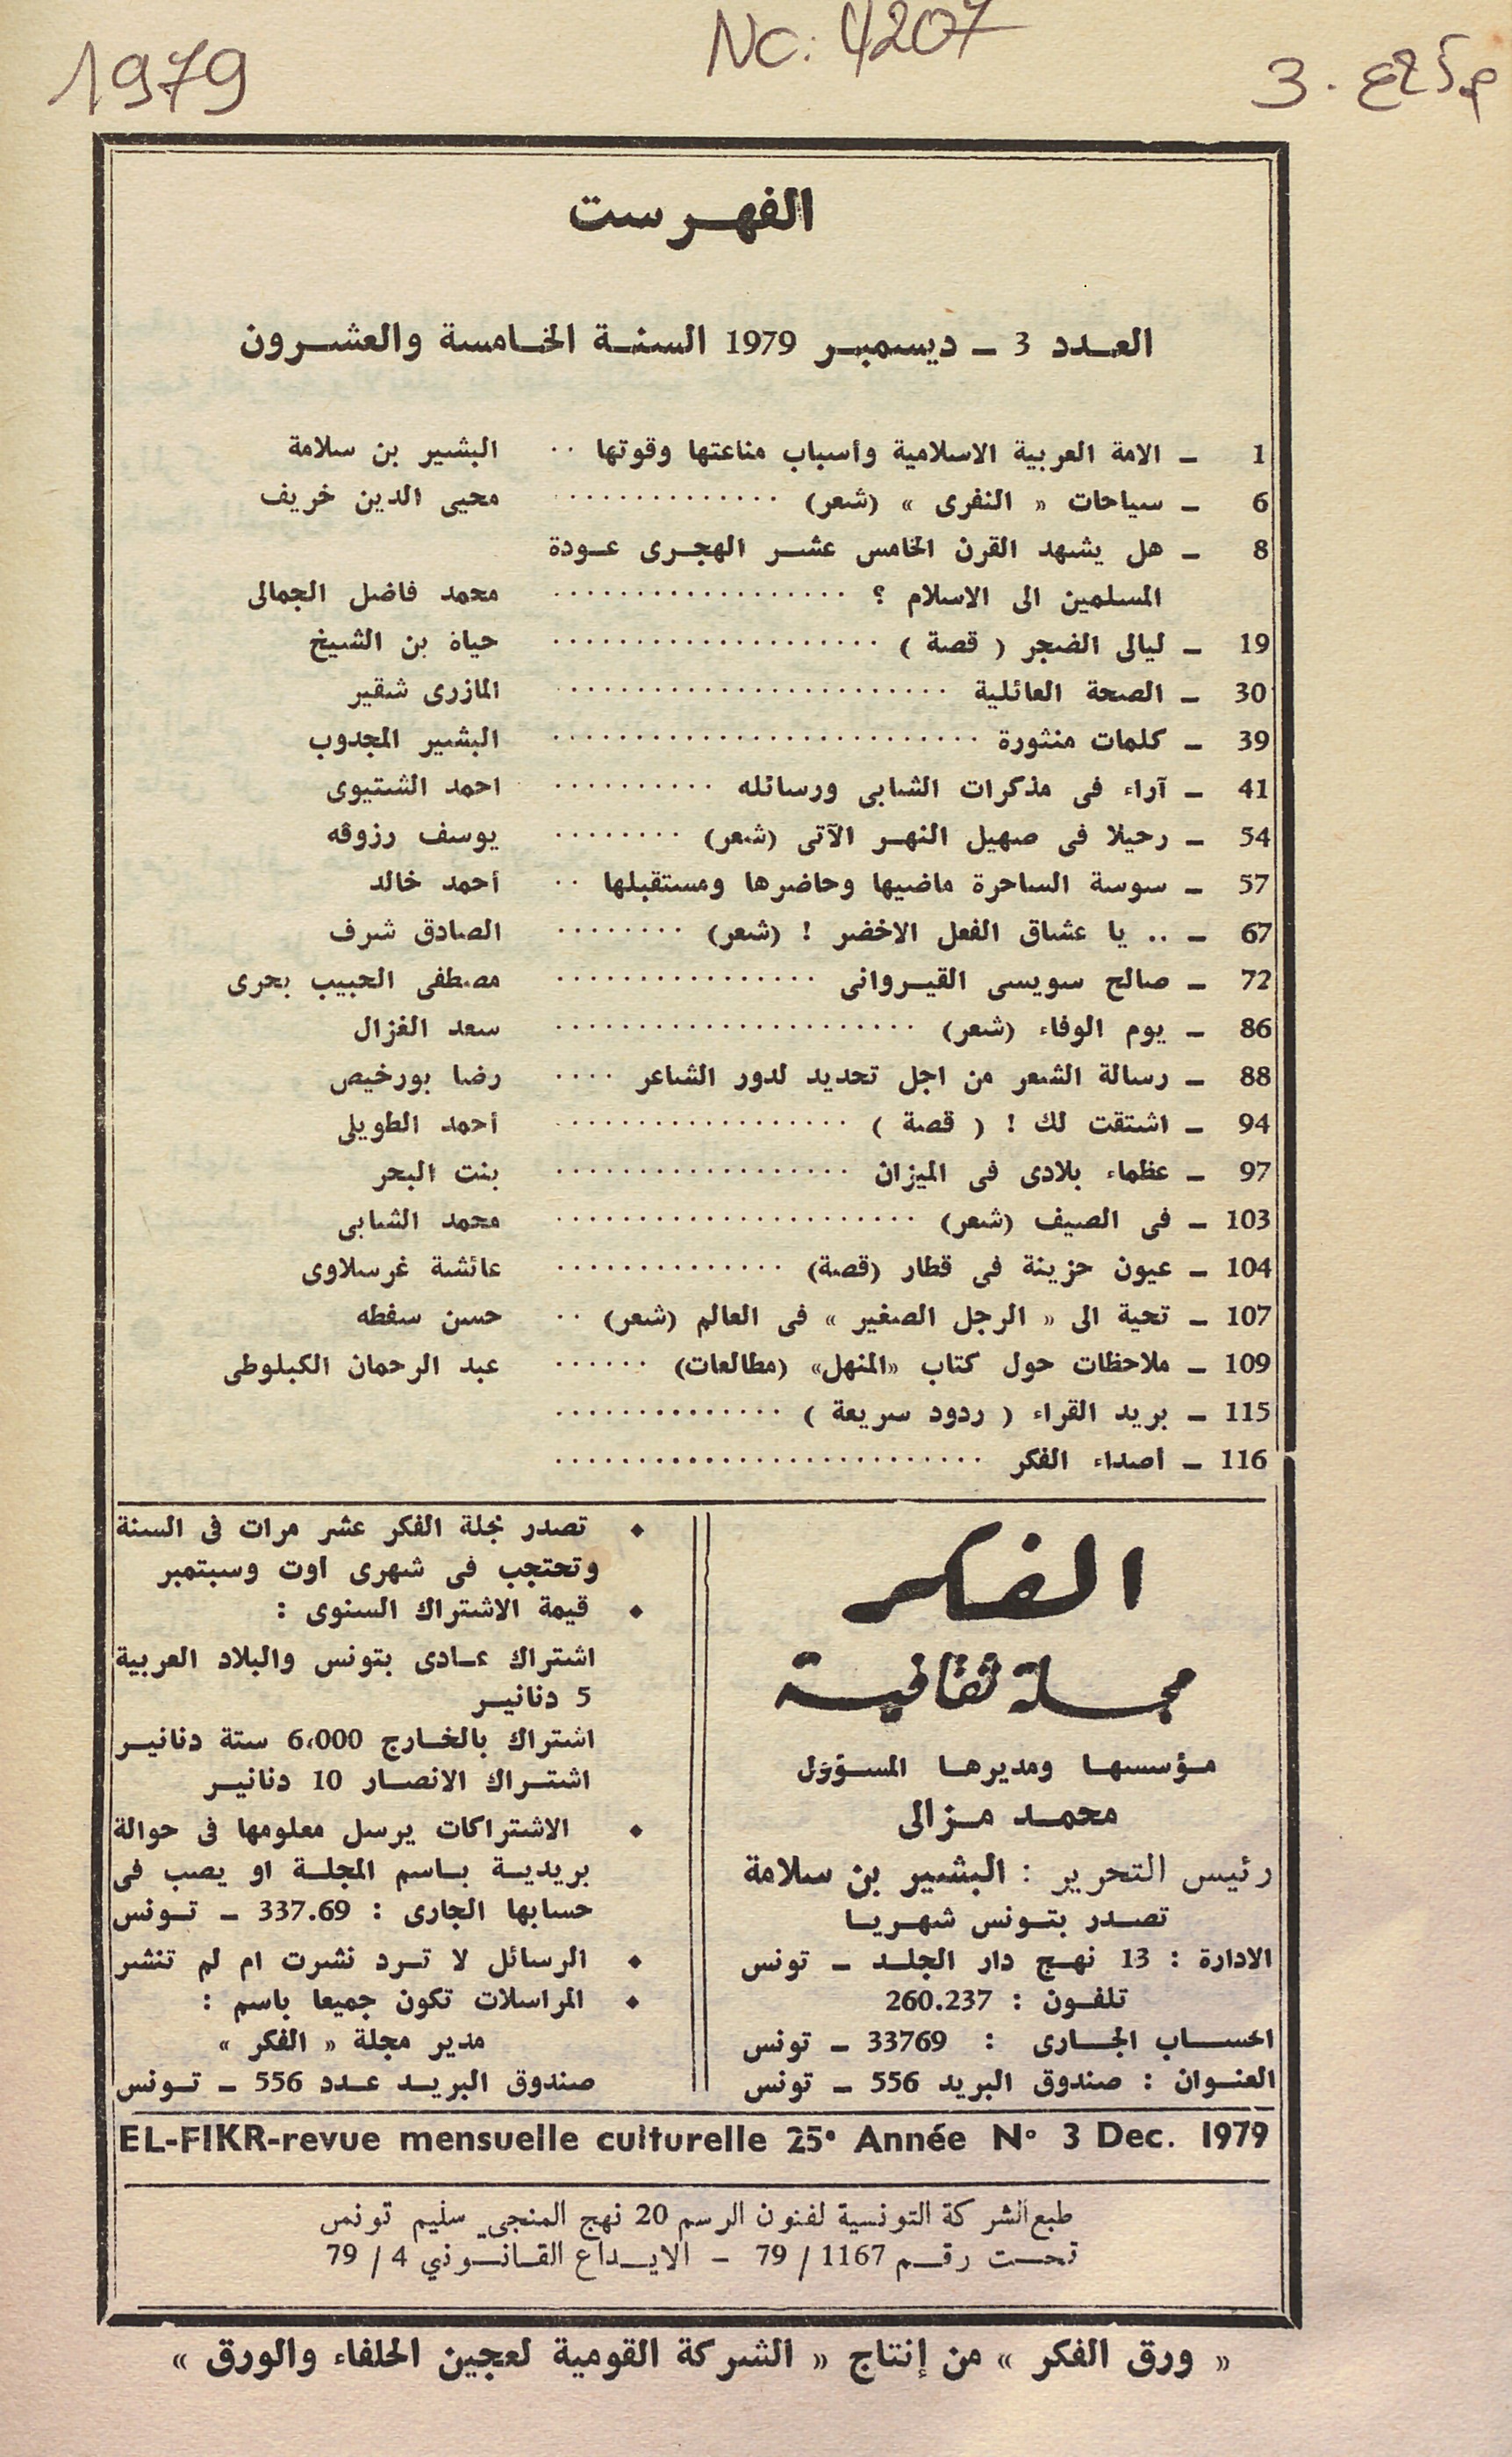 1979
Nc: 4207
3.
الفهرست
العدد 3 ـ ديسمبر 1979 السنة الخامسة والعشرون
1 ـ الامة العربية الاسلامية وأسباب مناعتها وقوتها ‥ البشير بن سلامة
6 ـ سياحات « النفرى » (شعر) .............. محيى الدين خريف
8 ـ هل يشهد القرن الخامس عشر الهجرى عودة
المسلمين الى الاسلام ؟ .................. محمد فاضل الجمالى
19 ـ ليالى الضجر ( قصة ) .................... حياة بن الشيخ
30 ـ الصحة العائلية ........................ المازرى شقير
39 ـ كلمات منثورة .......................... البشير المجدوب
41 ـ آراء فى مذكرات الشابى ورسائله .......... احمد الشتيوى
54 ـ رحيلا فى صهيل النهر الآتى (شعر) ........ يوسف رزوقه
57 ـ سوسة الساحرة ماضيها وحاضرها ومستقبلها .. أحمد خالد
67 ـ .. يا عشاق الفعل الاخضر ! (شعر) ........ الصادق شرف
72 ـ صالح سويسى القيروانى ................ مصطفى الحبيب بحرى
86 ـ يوم الوفاء (شعر) ...................... سعد الغزال
88 ـ رسالة الشعر من اجل تحديد لدور الشاعر .... رضا بورخيص
94 ـ اشتقت لك ! ( قصة ) .................. أحمد الطويلى
97 ـ عظماء بلادى فى الميزان .................. بنت البحر
103 ـ فى الصيف (شعر) ...................... محمد الشابى
104 ـ عيون حزينة فى قطار (قصة) .............. عائشة غرسلاوى
107 ـ تحية الى « الرجل الصغير » فى العالم (شعر) .. حسن سفطه
109 ـ ملاحظات حول كتاب «المنهل» (مطالعات) ...... عبد الرحمان الكبلوطى
115 ـ بريد القراء ( ردود سريعة ) ..............
116 ـ أصداء الفكر ..........................
الفكر
مجلة ثقافية
مؤسسها ومديرها المسؤول
محمد مزالى
رئيس التحرير : البشير بن سلامة
تصدر بتونس شهريا
الادارة : 13 نهج دار الجلد ـ تونس
تلفون : 260.237
الحساب الجارى : 33769 ـ تونس
العنوان : صندوق البريد 556 ـ تونس
♦ تصدر مجلة الفكر عشر مرات فى السنة
وتحتجب فى شهرى اوت وسبتمبر
♦ قيمة الاشتراك السنوى :
اشتراك عادى بتونس والبلاد العربية
5 دنانير
اشتراك بالخارج 6،000 ستة دنانير
اشتراك الانصار 10 دنانير
♦ الاشتراكات يرسل معلومها فى حوالة
بريدية باسم المجلة او يصب فى
حسابها الجارى : 337.69 ـ تونس
♦ الرسائل لا ترد نشرت ام لم تنشر
♦ المراسلات تكون جميعا باسم :
مدير مجلة « الفكر »
صندوق البريد عدد 556 ـ تونس
EL-FIKR-revue mensuelle culturelle 25e Année No 3 Dec. 1979
طبع الشركة التونسية لفنون الرسم 20 نهج المنجي سليم تونس
تحت رقم 1167 / 79 - الايداع القانوني 4 / 79
« ورق الفكر » من إنتاج « الشركة القومية لعجين الحلفاء والورق »